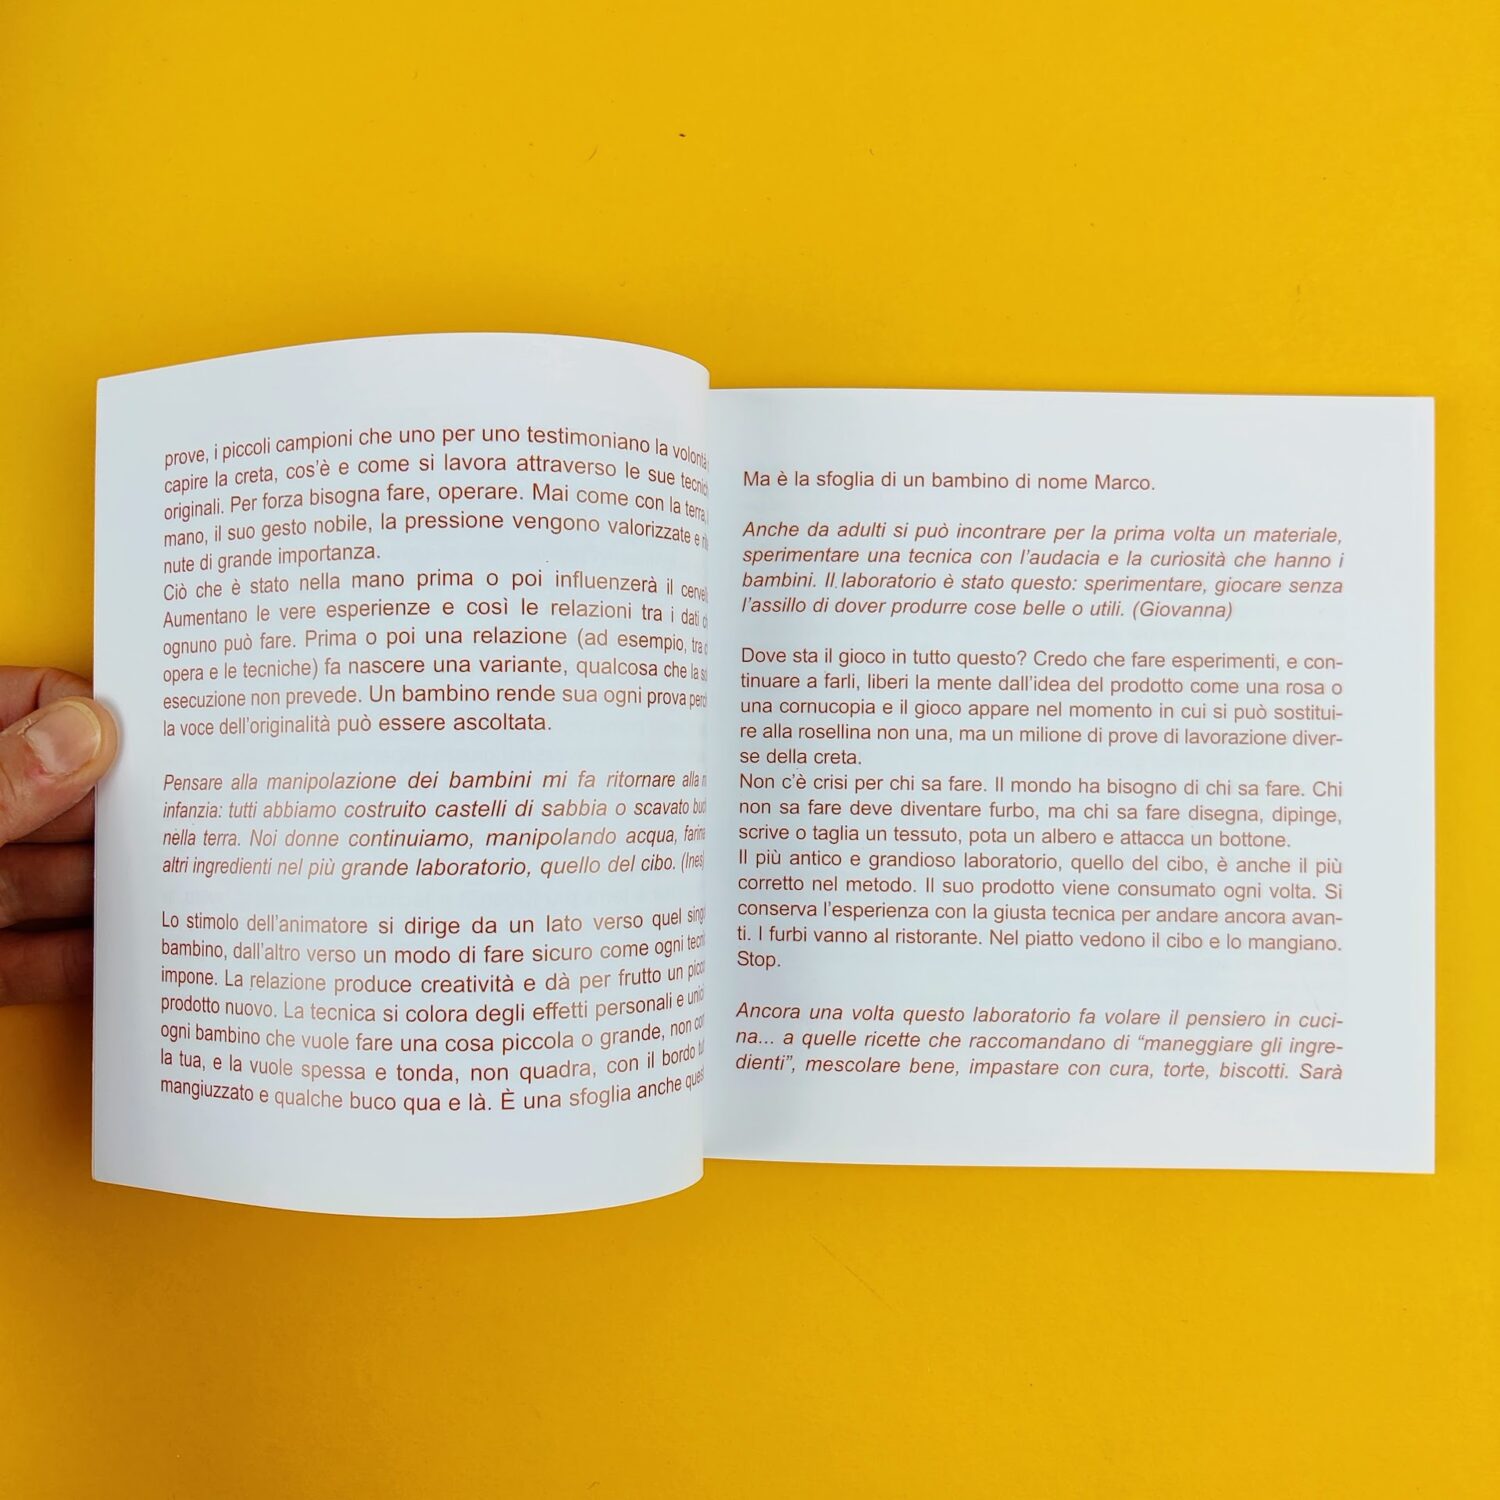 prove, i piccoli campioni che uno per uno testimoniano la volontà
capire la creta, cos'è e come si lavora attraverso le sue
originali. Per forza bisogna fare, operare. Mai come con la terra,
mano, il suo gesto nobile, la pressione vengono valorizzate e
nute di grande importanza.
Ciò che è stato nella mano prima o poi influenzerà il
Aumentano le vere esperienze e così le relazioni tra i dati
ognuno può fare. Prima o poi una relazione (ad esempio, tra
opera e le tecniche) fa nascere una variante, qualcosa che la
esecuzione non prevede. Un bambino rende sua ogni prova
la voce dell'originalità può essere ascoltata.
Pensare alla manipolazione dei bambini mi fa ritornare alla
infanzia: tutti abbiamo costruito castelli di sabbia o scavato
nella terra. Noi donne continuiamo, manipolando acqua,
altri ingredienti nel più grande laboratorio, quello del cibo. (Ines)
Lo stimolo dell'animatore si dirige da un lato verso quel
bambino, dall'altro verso un modo di fare sicuro come ogni
impone. La relazione produce creatività e dà per frutto un
prodotto nuovo. La tecnica si colora degli effetti personali e
ogni bambino che vuole fare una cosa piccola o grande, non
la tua, e la vuole spessa e tonda, non quadra, con il bordo
mangiuzzato e qualche buco qua e là. È una sfoglia anche
Ma è la sfoglia di un bambino di nome Marco.
Anche da adulti si può incontrare per la prima volta un materiale,
sperimentare una tecnica con l'audacia e la curiosità che hanno i
bambini. Il laboratorio è stato questo: sperimentare, giocare senza
l'assillo di dover produrre cose belle o utili. (Giovanna)
Dove sta il gioco in tutto questo? Credo che fare esperimenti, e con-
tinuare a farli, liberi la mente dall'idea del prodotto come una rosa o
una cornucopia e il gioco appare nel momento in cui si può sostitui-
re alla rosellina non una, ma un milione di prove di lavorazione diver-
se della creta.
Non c'è crisi per chi sa fare. Il mondo ha bisogno di chi sa fare. Chi
non sa fare deve diventare furbo, ma chi sa fare disegna, dipinge,
scrive o taglia un tessuto, pota un albero e attacca un bottone.
Il più antico e grandioso laboratorio, quello del cibo, è anche il più
corretto nel metodo. Il suo prodotto viene consumato ogni volta. Si
conserva l'esperienza con la giusta tecnica per andare ancora avan-
ti. I furbi vanno al ristorante. Nel piatto vedono il cibo e lo mangiano.
Stop.
Ancora una volta questo laboratorio fa volare il pensiero in cuci-
na... a quelle ricette che raccomandano di “maneggiare gli ingre-
dienti”, mescolare bene, impastare con cura, torte, biscotti. Sarà